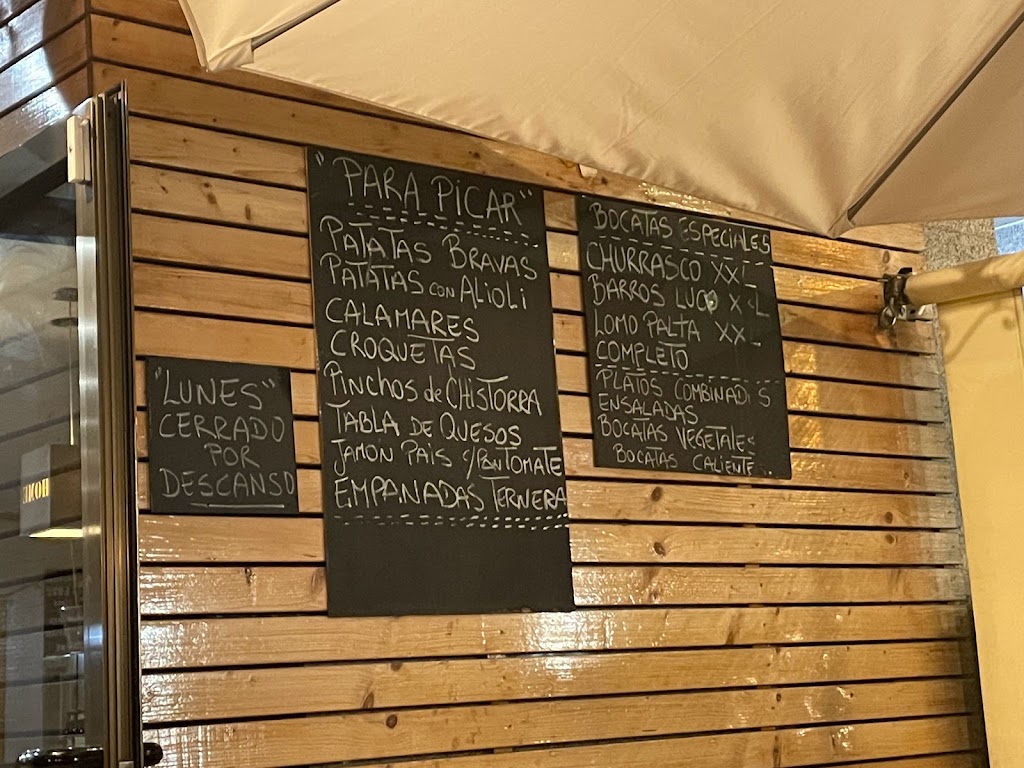 "LUNES"
CERRADO
POR
DESCANSO
"PARA PICAR"
PATATAS BRAVAS
PATATAS CON ALIOLI
CALAMARES
CROQUETAS
PINCHOS de CHISTORRA
TABLA DE QUESOS
JAMON PAIS c/PAN TOMATE
EMPANADAS TERNERA
BOCATAS ESPECIALES
CHURRASCO XXL
BARROS LUCO XXL
LOMO PALTA XXL
COMPLETO
PLATOS COMBINADOS
ENSALADAS
BOCATAS VEGETALES
BOCATAS CALIENTE